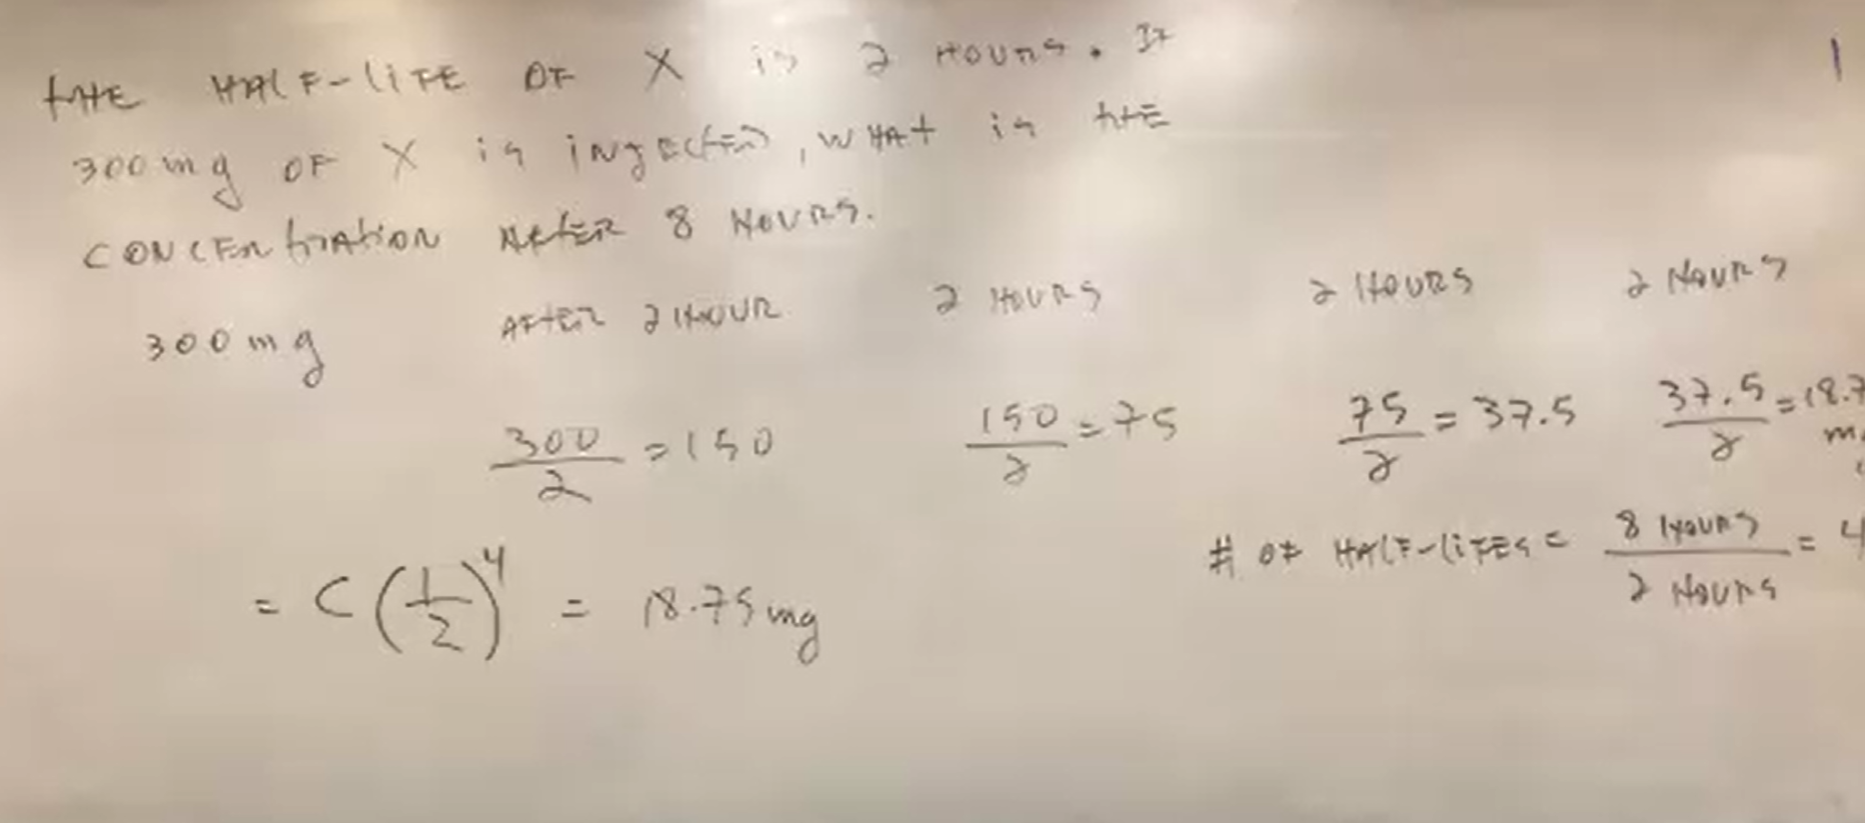 THE HALF-LIFE OF X is 2 HOURS. IF
300 mg OF X is injected, WHAT is tHE
CONCENtrAtiON AFtER 8 HOURS.
300 mg AFTER 2 HOUR 2 HOURS 2 HOURS 2 HOURS
300/2 = 150 150/2 = 75 75/2 = 37.5 37.5/2 = 18.7
# OF HALF-LiFES = 8 HOURS/2 HOURS = 4
= C (1/2)^4 = 18.75 mg